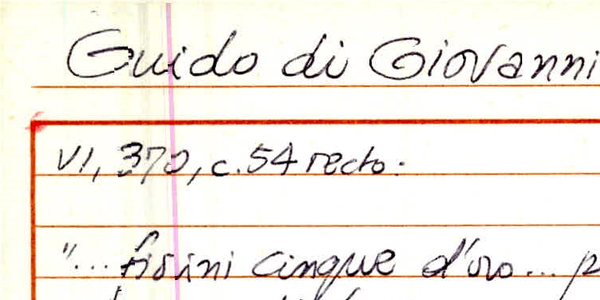 Guido di Giovanni
VI, 370, c. 54 recto.
"... fiorini cinque d'oro...